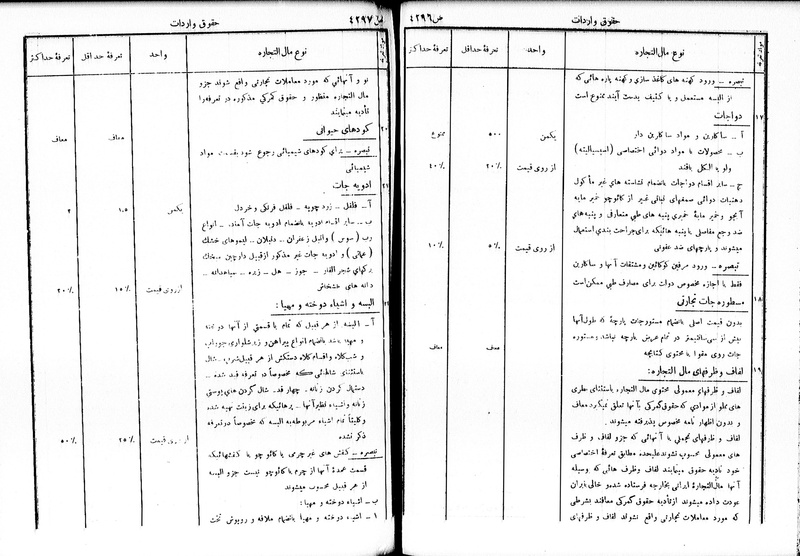 ص ٤٢٩٦
حقوق واردات
نوع مال‌التجاره
واحد
تعرفهٔ حداقل
تعرفهٔ حداکثر
تبصره ـ ورود کهنه های کاغذ سازی و کهنه پاره هائی که
از البسه مستعمل و یا کثیف بدست آیند ممنوع است
١٧
دواجات
آ ـ ساکارین و مواد ساکارین دار
یکمن
٥٠٠
ممنوع
ب ـ محصولات یا مواد دوائی اختصاصی (اسپسیالیته)
ولو با الکل باشد
از روی قیمت
٢٠٪
٤٠٪
ج ـ سایر اقسام دواجات بانضمام نشاسته های غیر مأکول
دهنیات دوائی صمغهای نباتی غیر از کائوچو خمیر مایه
آبجو و خمیر مایهٔ خمیری پنبه های طبی متعارفی و پنبه‌های
ضد وجع مفاصلی یا پنبه هائیکه برای‌جراحت بندی استعمال
میشوند و پارچهای ضد عفونی
از روی قیمت
٥٪
١٠٪
تبصره ـ ورود مرفین کوکائین و مشتقات آنها و ساکارین
فقط با اجازه مخصوص دولت برای مصارف طبی ممکن‌است
١٨
مسطوره جات تجارتی
بدون قیمت اصلی بانضمام مسطورجات پارچهٔ که طول‌آنها
بیش از سی‌سانتیمتر در تمام عرض پارچه نباشد و مسطوره
جات روی مقوا یا محتوی کتابچه
معاف
معاف
١٩
لفاف و ظرفهای مال التجاره:
لفاف و ظرفهای معمولی محتوی مال التجاره باستثنای بطری
های مملو از موادی که حقوق گمرکی بآنها تعلق نمیگیرد معاف
و بدون اظهار نامه مخصوص پذیرفته میشوند.
لفاف و ظرفهای تجملی یا آنهائی که جزو لفاف و ظرف
های معمولی محسوب نشوند علیحده مطابق تعرفهٔ اختصاصی
خود تادیه حقوق مینمایند لفاف وظرف هائی که بوسیله
آنها مال‌التجارهٔ ایرانی بخارجه فرستاده شده و خالی بایران
عودت داده میشوند ازتأدیه حقوق گمرکی معافند بشرطی
که مورد معاملات تجارتی واقع نشوند لفاف و ظرفهای
ص ٤٢٩٧
حقوق واردات
نوع مال‌التجاره
واحد
تعرفهٔ حداقل
تعرفهٔ حداکثر
نو و آنهائی که مورد معاملات تجارتی واقع شوند جزو
مال التجاره منظور و حقوق گمرکی مذکوره در تعرفه‌را
تأدیه مینمایند
٢٠
کودهای حیوانی
معاف
معاف
تبصره ـ برای کودهای شیمیائی رجوع شود بقسمت مواد
شیمیائی
٢١
ادویه جات
آ ـ فلفل ـ زرد چوبه ـ فلفل فرنگی و خردل
یکمن
١٫٥
٢
ب ـ سایر اقسام ادویه بانضمام ادویه جات آماده. ـ انواع
رب (سوس) وانیل زعفران ـ دلبلان ـ لیموهای خشک
(عمانی) و ادویه جات غیر مذکور ازقبیل دارچین میخک
برگهای شجر الغار ـ جوز ـ هل ـ زیره ـ سیاهدانه ـ
دانه های خشخاش
از روی قیمت
١٥٪
٢٠٪
البسه و اشیاء دوخته و مهیا:
آ ـ البسه از هر قبیل که تمام یا قسمتی از آنها دوخته
و مهیا باشد بانضمام انواع پیراهن و زیرشلواری جوراب
و شب‌کلاه و اقسام کلاه دستکش از هر قبیل شرپ ـ شال
باستثنای شالهائی که مخصوصاً در تعرفه قید شده ـ
دستمال گردن زنانه ـ چهار قد ـ شال گردن های پوستی
زنانه واشیاء نظیر آنها ـ پرهائیکه برای زینت تهیه شده
و کلیتاً تمام اشیاء مربوطه به البسه که مخصوصاً درتعرفه
ذکر نشده
از روی قیمت
٢٥٪
٥٠٪
تبصره ـ کفش های غیر چرمی یا کائوچو یا کفشهائیکه
قسمت عمدهٔ آنها از چرم یا کائوچو نیست جزو البسه
از هر قبیل محسوب میشوند
ب ـ اشیاء دوخته و مهیا:
١ ـ اشیاء دوخته و مهیا بانضمام ملافه و روپوش تخت